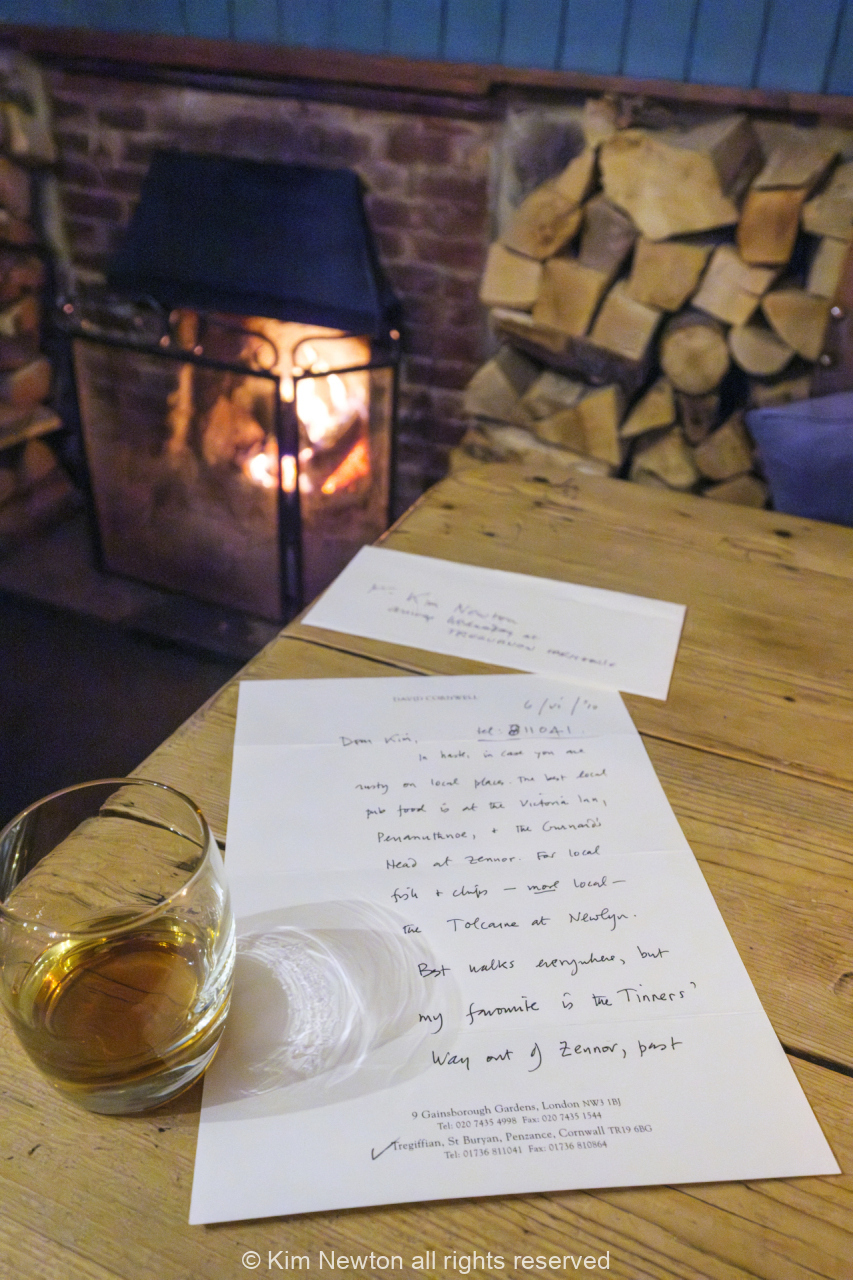 Mr. Kim Newton
at
DAVID CORNWELL
6/vi/'10
Dear Kim, tel: 811041.
In haste, in case you are
rusty on local places. The best local
pub food is at the Victoria Inn,
Perranuthnoe, + the Gurnard's
Head at Zennor. For local
fish + chips – more local –
the Tolcarne at Newlyn.
Best walks everywhere, but
my favourite is the Tinners'
Way out of Zennor, past
9 Gainsborough Gardens, London NW3 1BJ
Tel: 020 7435 4998 Fax: 020 7435 1544
Tregiffian, St Buryan, Penzance, Cornwall TR19 6BG
Tel: 01736 811041 Fax: 01736 810864
© Kim Newton all rights reserved